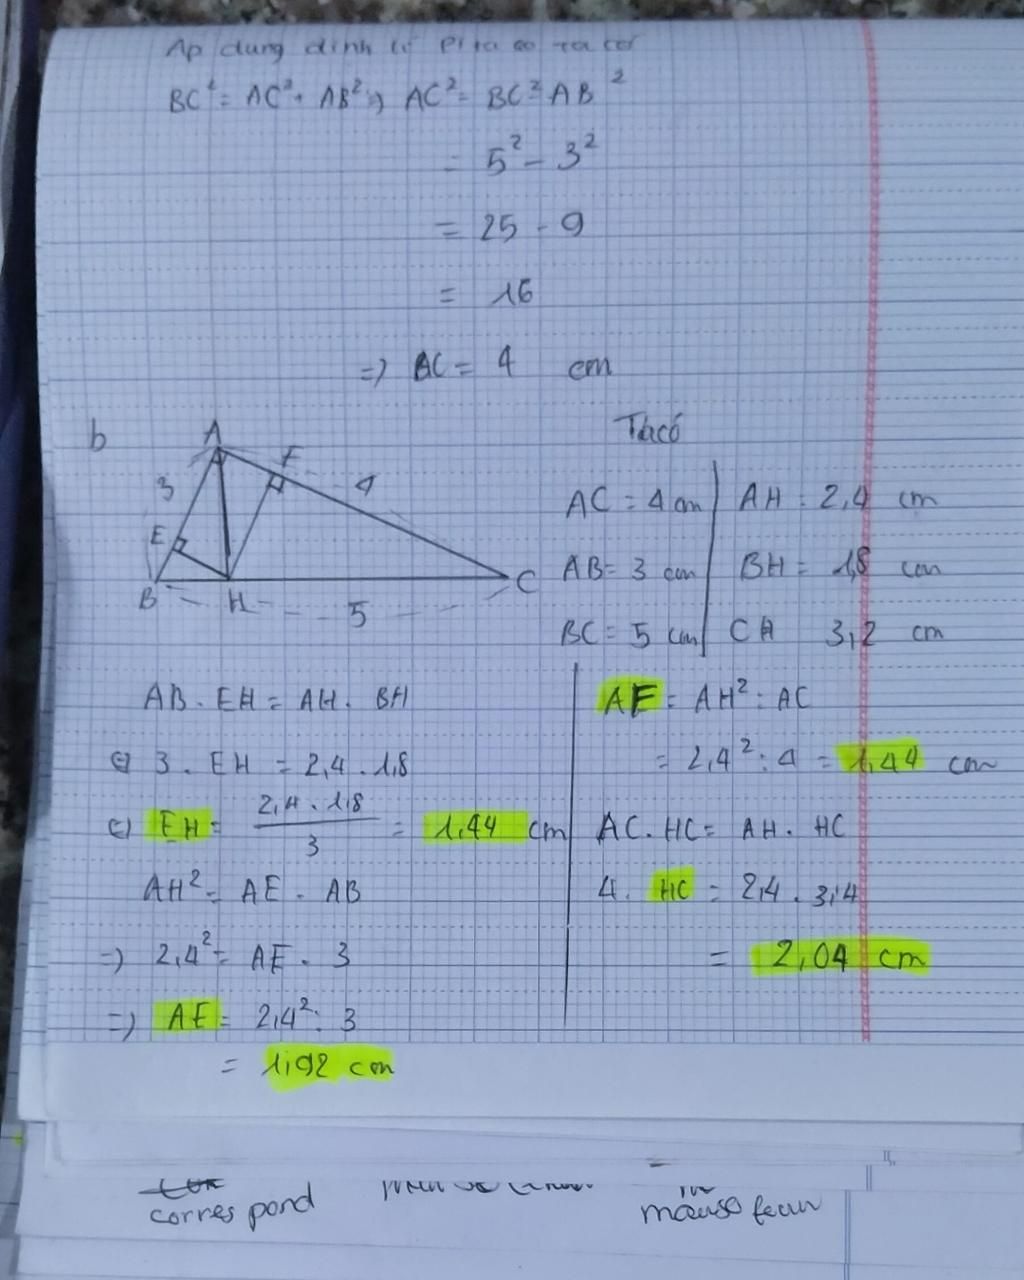 Ap dụng định lí Pitago ta có
BC² = AC² + AB² => AC² = BC² - AB²
= 5² - 3²
= 25 - 9
= 16
=> AC = 4 cm
b
A
F
3
4
E
B
H
5
C
Ta có
AC = 4 cm
AB = 3 cm
BC = 5 cm
AH = 2,4 cm
BH = 1,8 cm
CH 3,2 cm
AB . EH = AH . BH
3 . EH = 2,4 . 1,8
EH = 2,4 . 1,8 / 3 = 1,44 cm
AH² = AE . AB
=> 2,4² = AE . 3
=> AE = 2,4² : 3
= 1,92 cm
AF = AH² : AC
= 2,4² : 4 = 1,44 cm
AC . HC = AH . HC
4 . HC = 2,4 . 3,4
= 2,04 cm
correspond